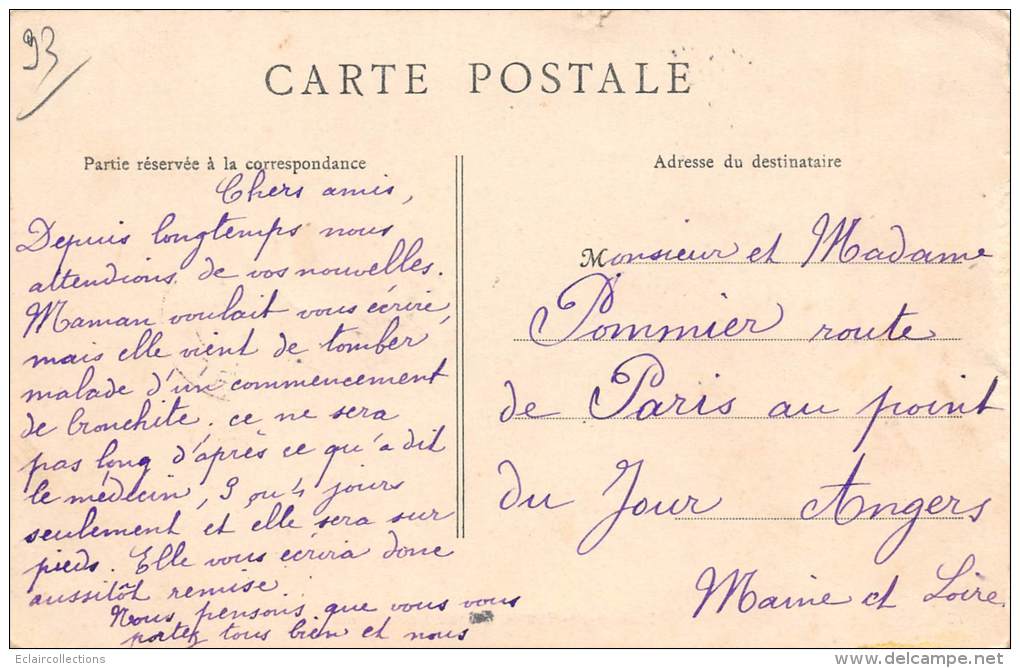 93
CARTE POSTALE
Partie réservée à la correspondance
Chers amis,
Depuis longtemps nous
attendions de vos nouvelles.
Maman voulait vous écrire,
mais elle vient de tomber
malade d'un commencement
de bronchite. ce ne sera
pas long d'après ce qu'a dit
le médecin, 3 ou 4 jours
seulement et elle sera sur
pieds. Elle vous écrira donc
aussitôt remise.
Nous pensons que vous vous
portez tous bien et nous
Adresse du destinataire
Monsieur et Madame
Pommier route
de Paris au point
du Jour Angers
Maine et Loire.
Eclaircollections